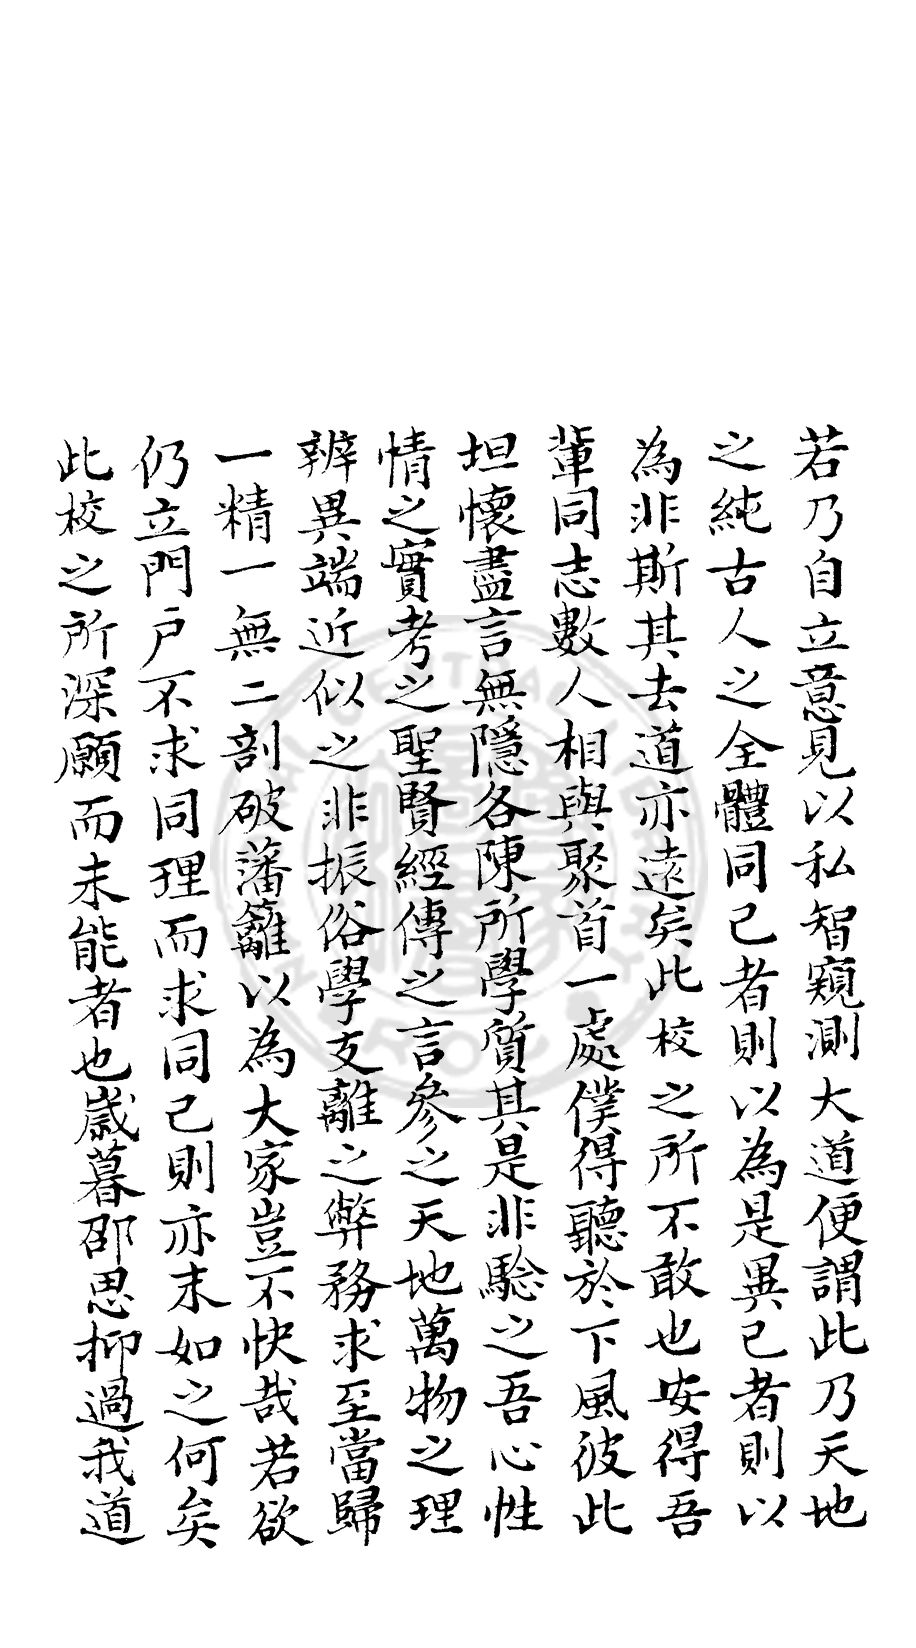 若乃自立意見以私智窺測大道便謂此乃天地
之純古人之全體同己者則以為是異己者則以
為非斯其去道亦遠矣此校之所不敢也安得吾
輩同志數人相與聚首一處僕得聽於下風彼此
坦懷盡言無隱各陳所學質其是非驗之吾心性
情之實考之聖賢經傳之言參之天地萬物之理
辨異端近似之非振俗學支離之弊務求至當歸
一精一無二剖破藩籬以為大家豈不快哉若欲
仍立門戶不求同理而求同己則亦末如之何矣
此校之所深願而未能者也歲暮邵思抑過我道